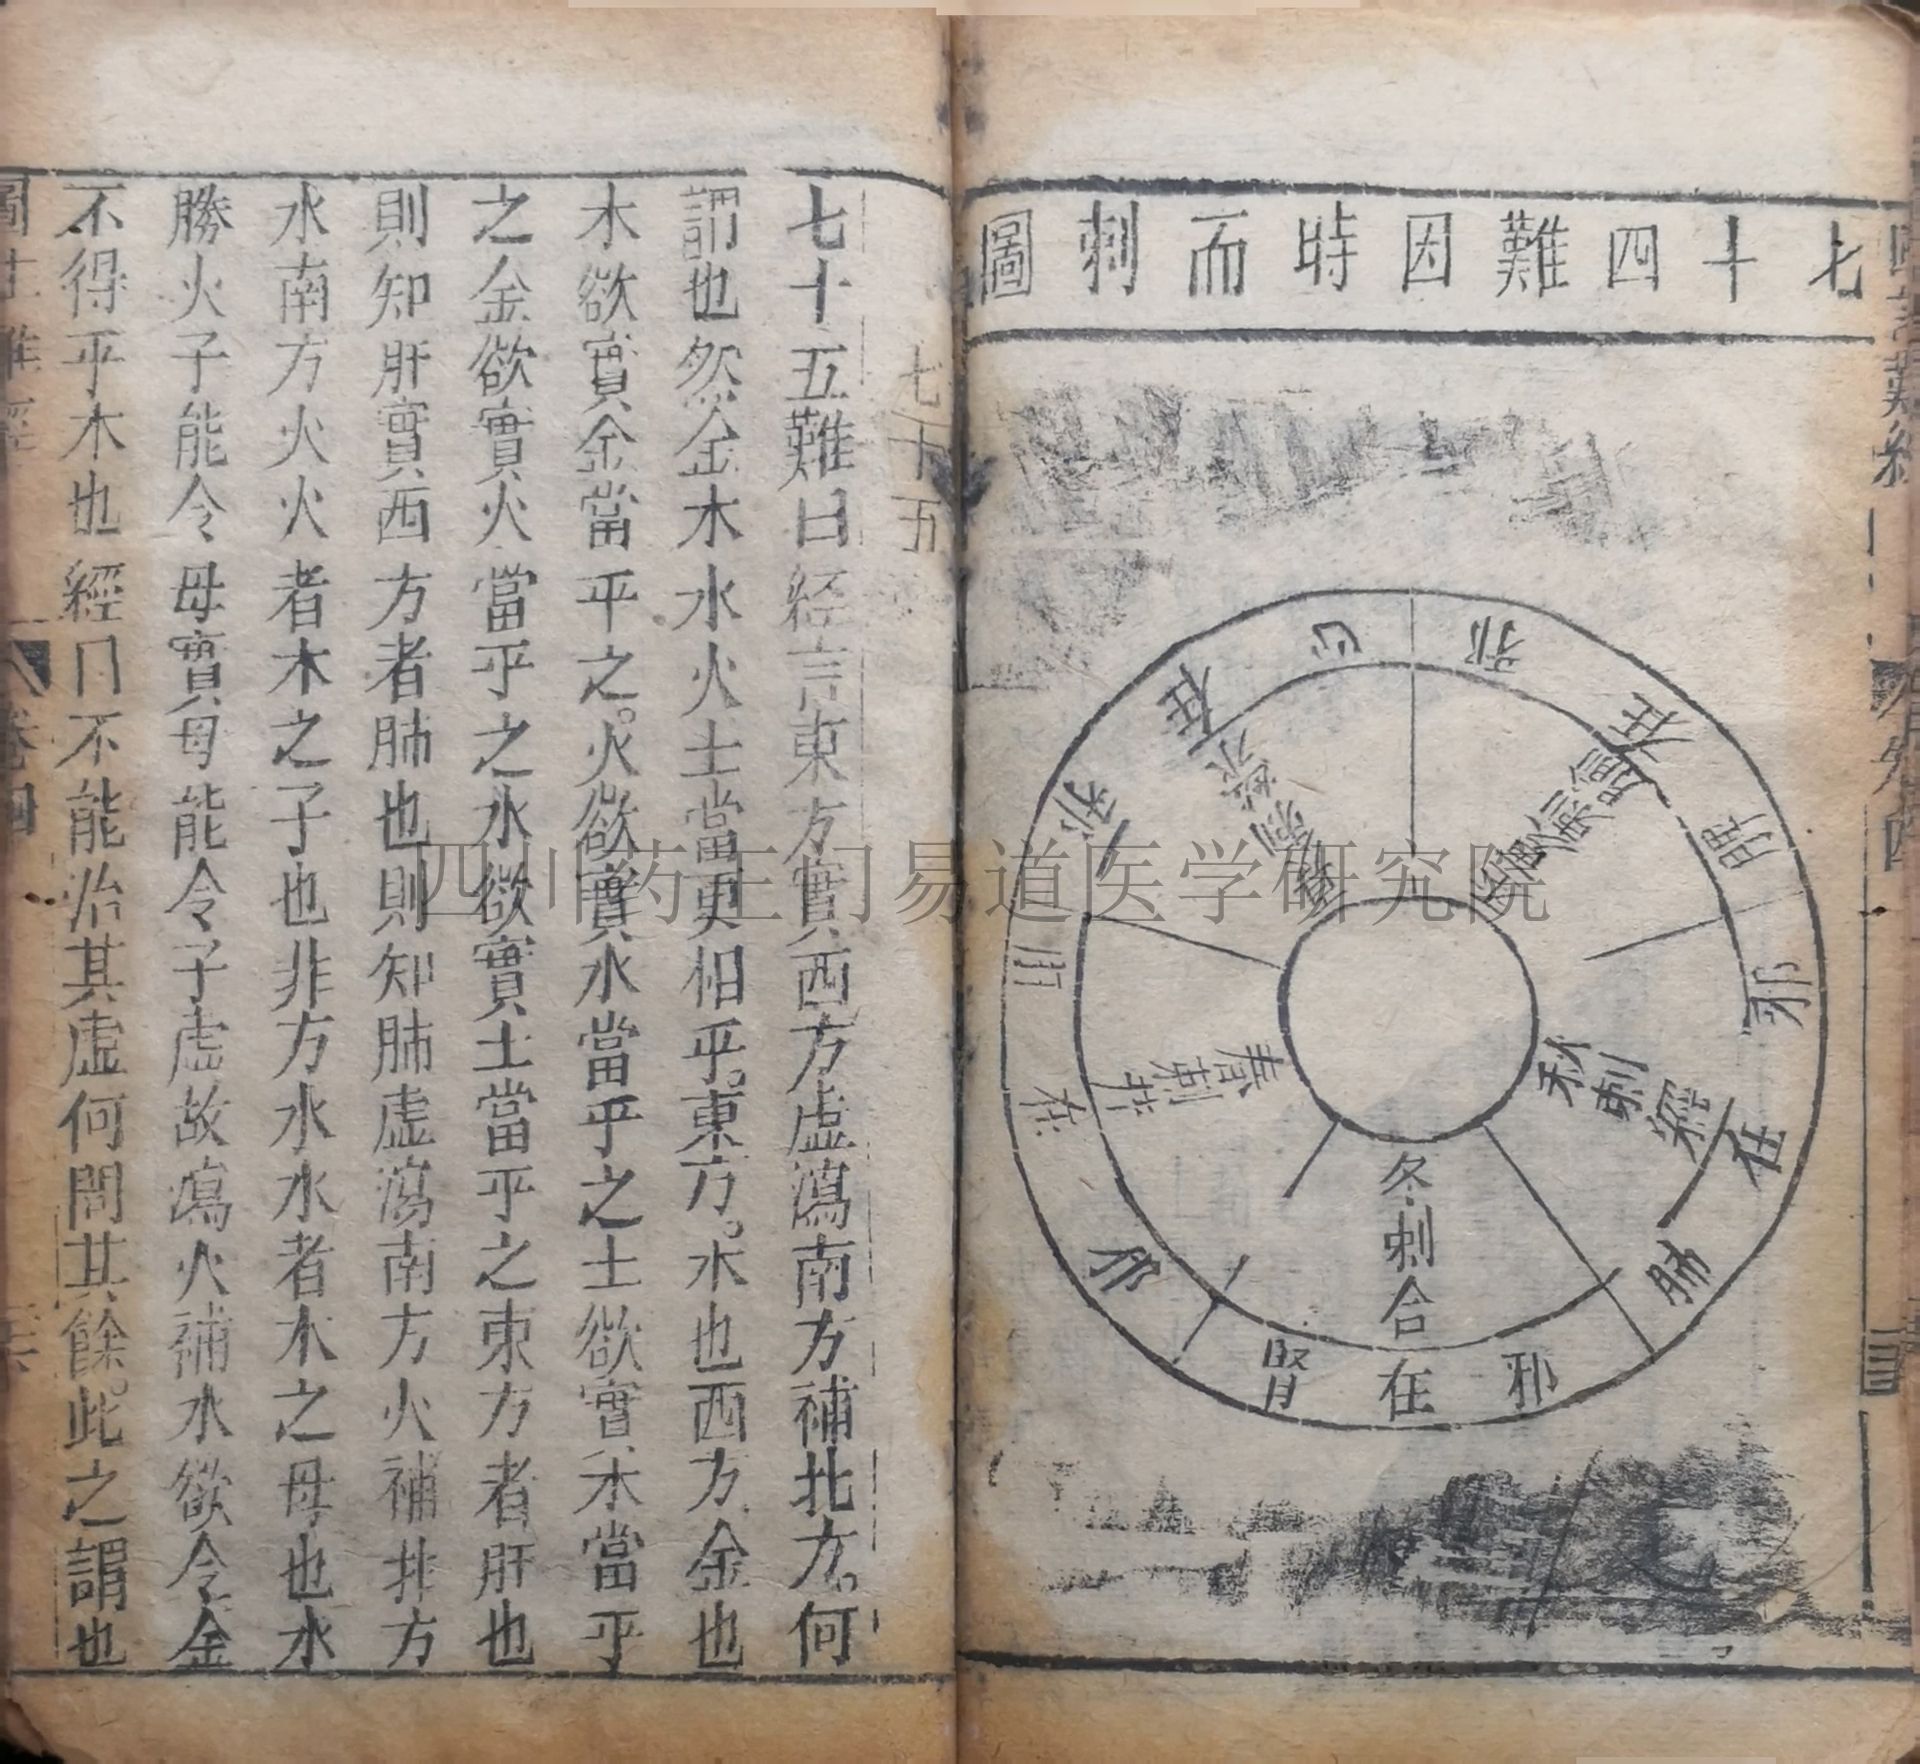 七十四難因時而刺圖
春刺井
邪在肝
夏刺滎
邪在心
季夏刺俞
邪在脾
秋刺經
邪在肺
冬刺合
邪在腎
七十五
七十五難曰經言東方實西方虛瀉南方補北方何
謂也然金木水火土當更相平東方木也西方金也
木欲實金當平之火欲實水當平之土欲實木當平
之金欲實火當平之水欲實土當平之東方者肝也
則知肝實西方者肺也則知肺虛瀉南方火補北方
水南方火火者木之子也非方水水者木之母也水
勝火子能令母實母能令子虛故瀉火補水欲令金
不得平木也經曰不能治其虛何問其餘此之謂也
卷四
四川药王门易道医学研究院